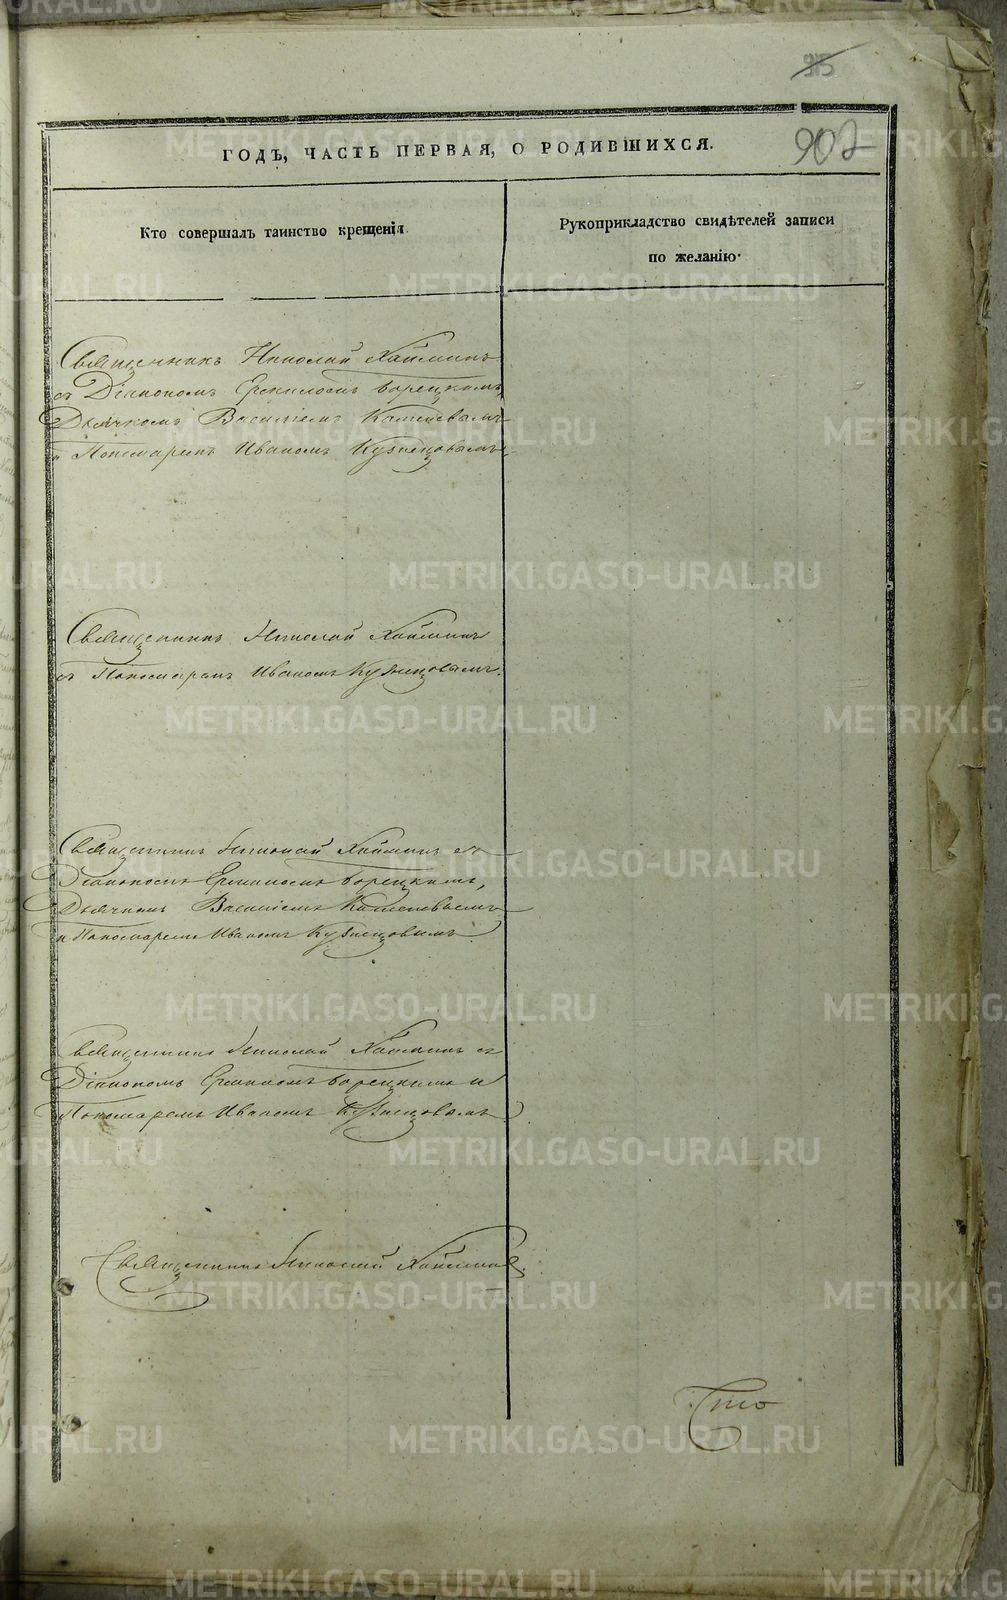 902
ГОДЪ, ЧАСТЬ ПЕРВАЯ, О РОДИВШИХСЯ.
Кто совершалъ таинство крещенія.
Рукоприкладство свидѣтелей записи
по желанію.
Священникъ Николай Хаймин
съ Діакономъ Ермиломъ Борецкимъ,
Дьячкомъ Василіемъ
и Пономаремъ Иваномъ Кузнецовымъ.
Священникъ Николай Хаймин
съ Пономаремъ Иваномъ Кузнецовымъ.
Священникъ Николай Хаймин съ
Діакономъ Ермиломъ Борецкимъ,
Дьячкомъ Василіемъ
и Пономаремъ Иваномъ Кузнецовымъ.
Священникъ Николай Хаймин съ
Діакономъ Ермиломъ Борецкимъ и
Пономаремъ Иваномъ Кузнецовымъ
Священникъ Николай Хаймин
METRIKI.GASO-URAL.RU